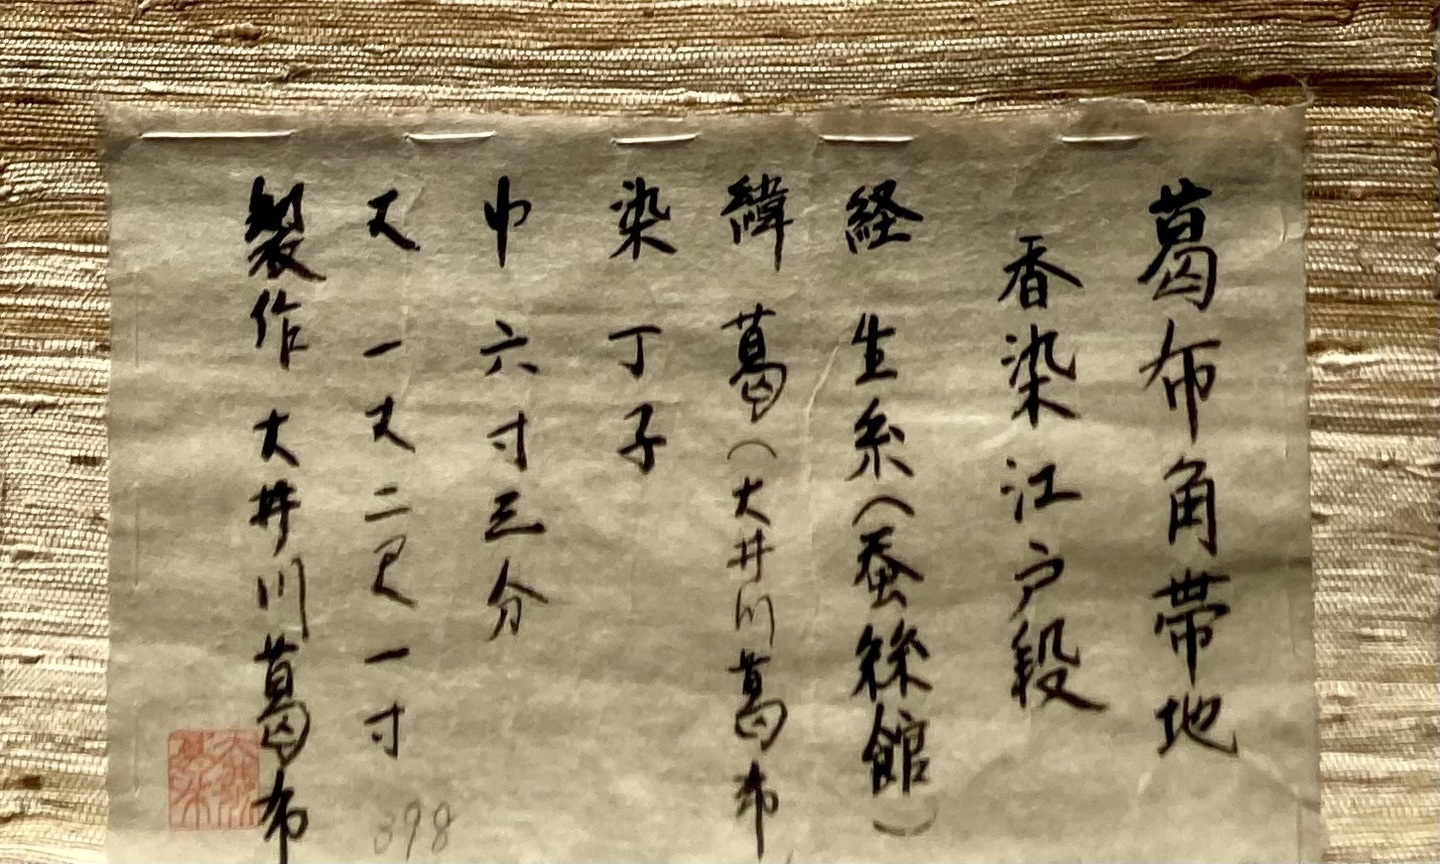 葛布角帯地
香染江戸段
経 生糸(蚕絲館)
緯 葛(大井川葛布
染 丁子
巾 六寸三分
丈 一丈二尺一寸
製作 大井川葛布
398